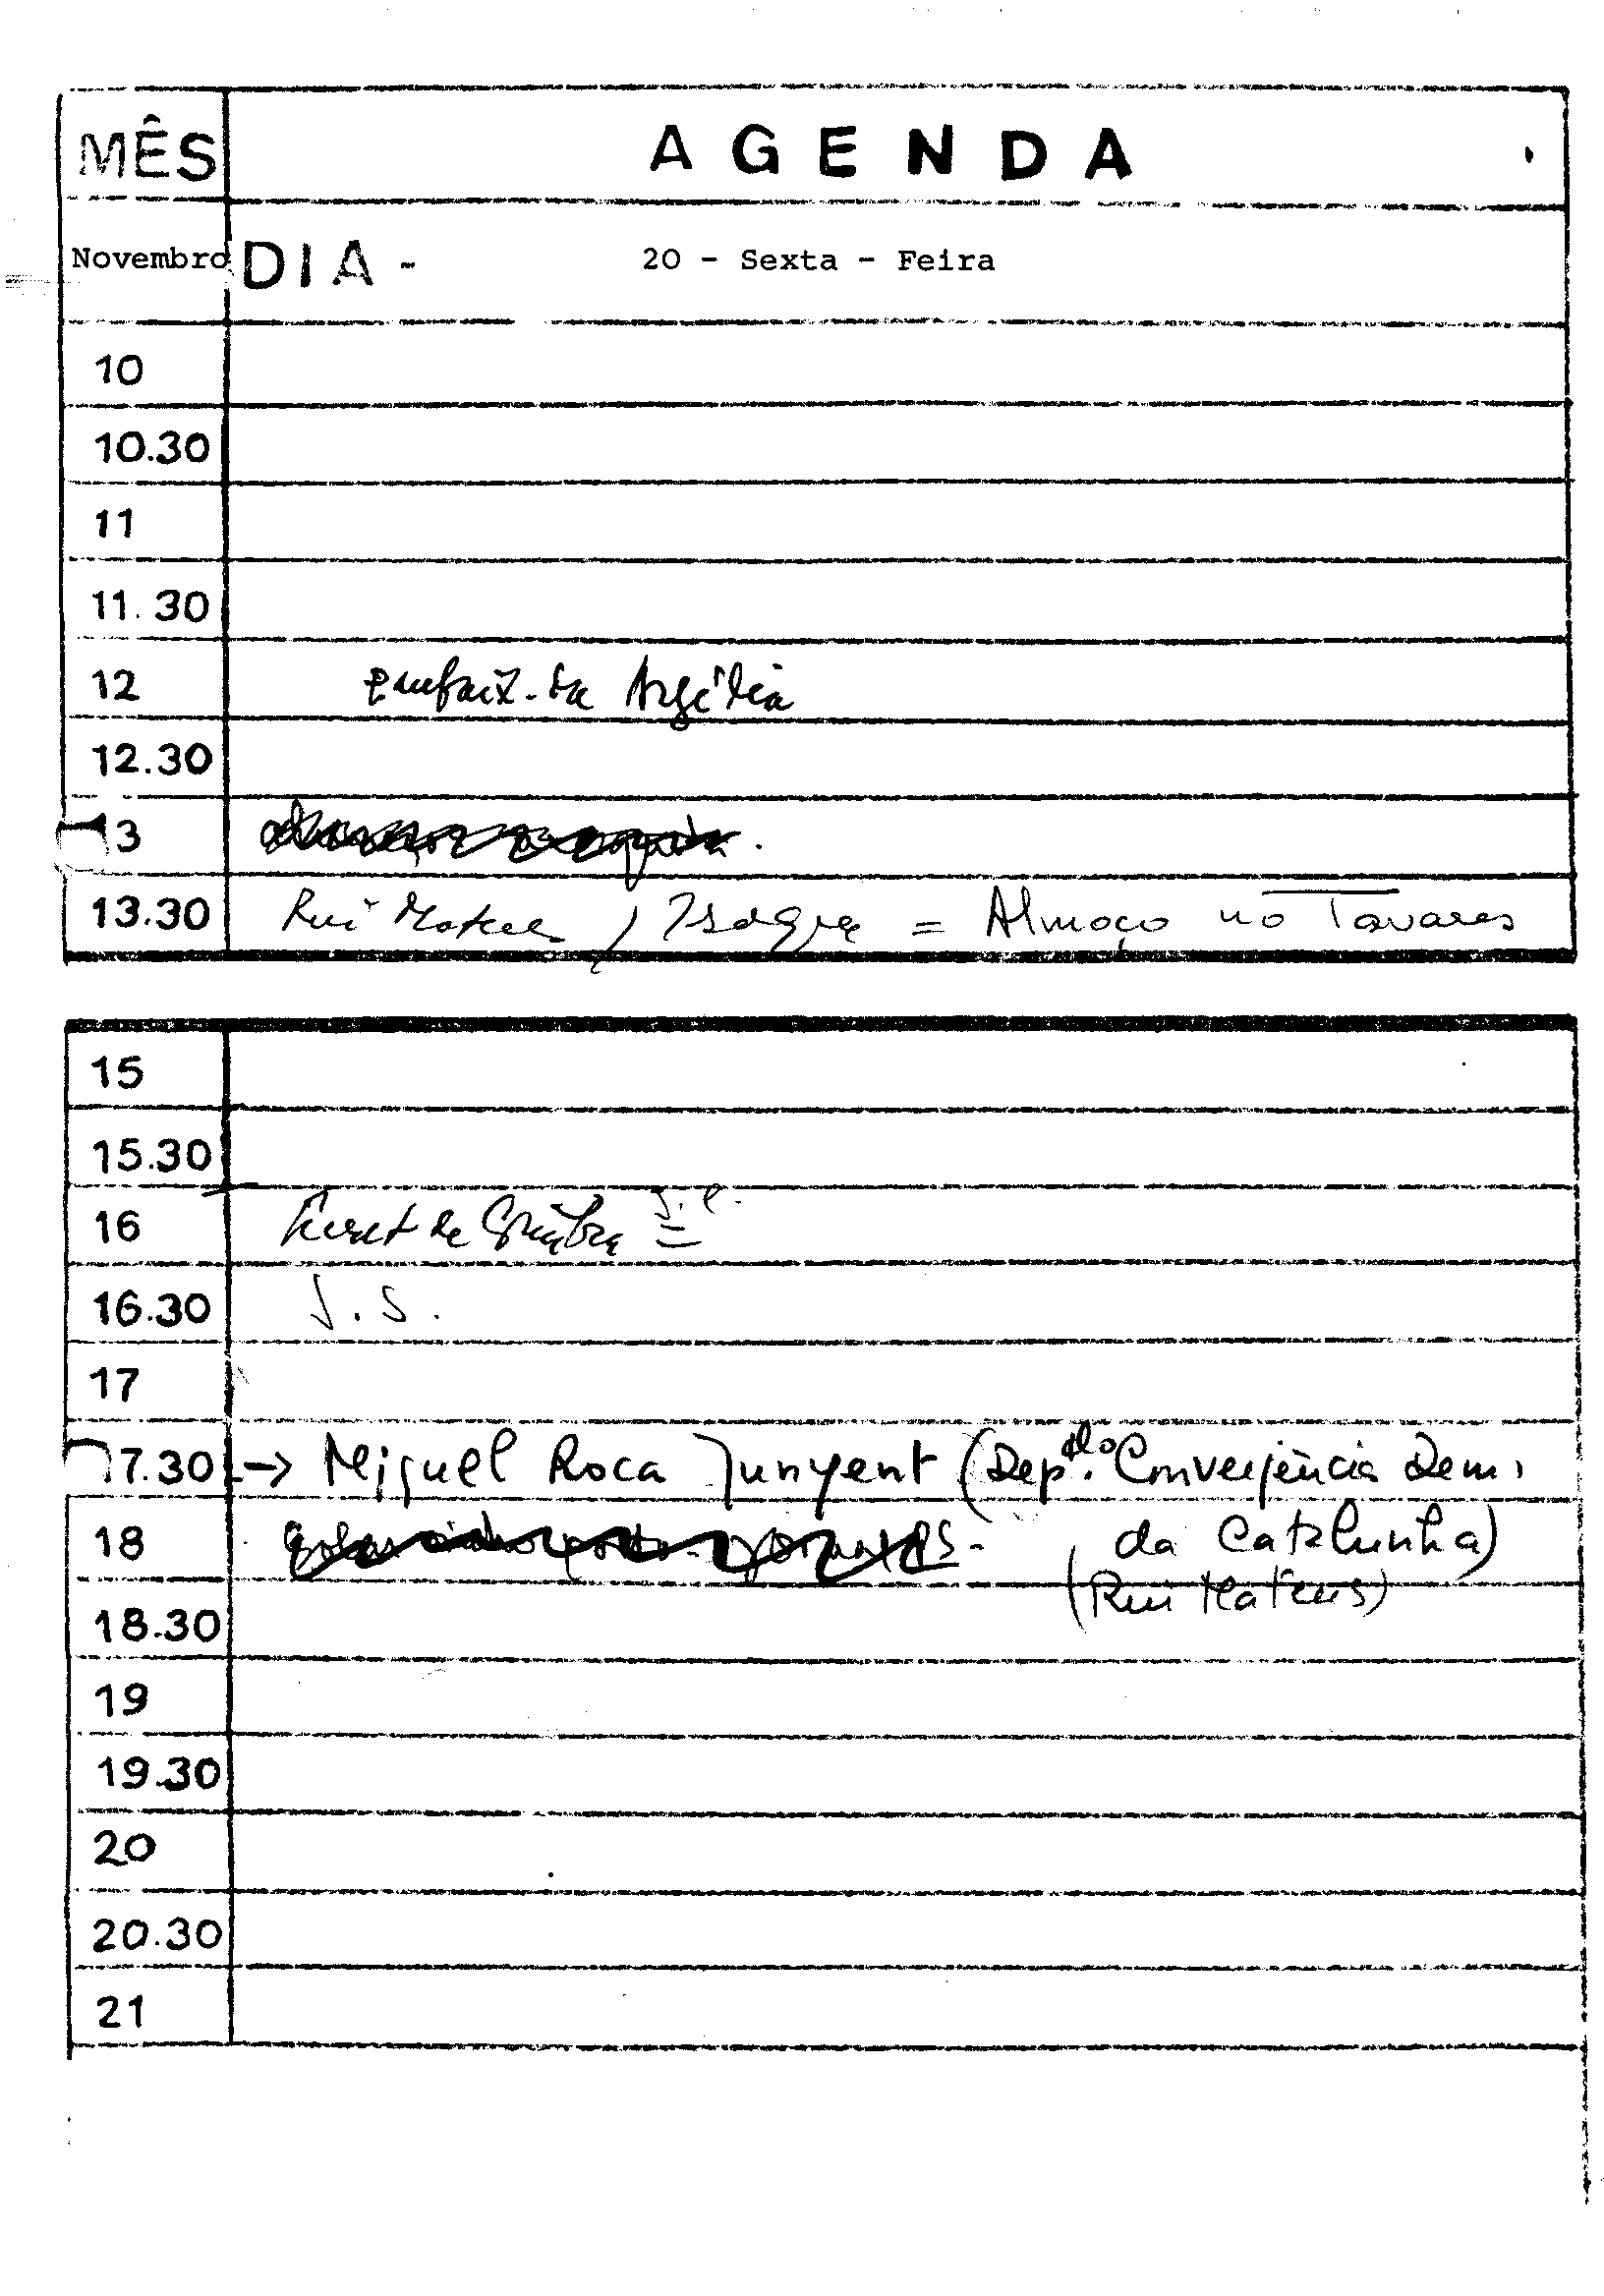 MÊS AGENDA
Novembro DIA - 20 - Sexta - Feira
10
10.30
11
11.30
12 Embaix. da Argélia
12.30
13
13.30 Rui Mateus / = Almoço no Tavares
15
15.30
16 de
16.30 J.S.
17
17.30 -> Miguel Roca Junyent (Dep.do Convergência Dem.
18 da Catalunha)
(Rui Mateus)
18.30
19
19.30
20
20.30
21